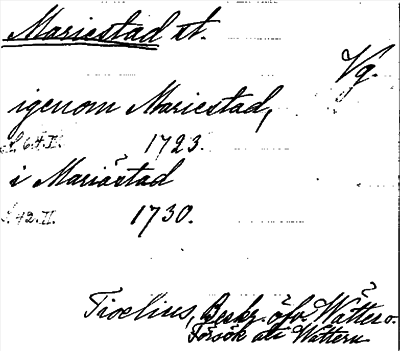 Mariestad st.
Vg.
igenom Mariestad,
S. 64. I. 1723.
i Mariæstad
S. 42. II. 1730.
Tiselius, Beskr. öfv. Wätter o.
Försök att Wättern